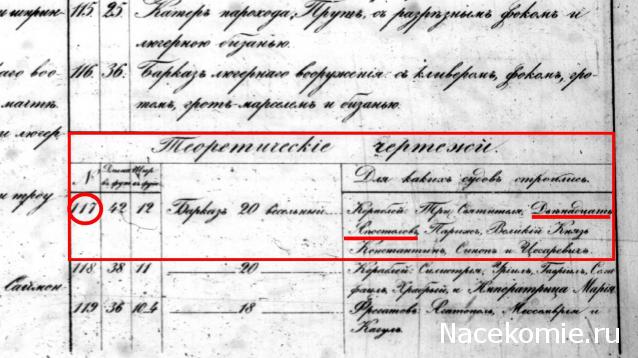 115. 25. Катеръ парохода „Прутъ, съ разрѣзнымъ фокомъ и
люгерною бизанью.
116. 36. Барказъ люгернаго вооруженія: съ кливеромъ, фокомъ, гро-
томъ, гротъ-марселемъ и бизанью.
Теоретическіе чертежи.
№ Длина въ фут. Шир. въ фут. Для какихъ судовъ строились.
117 42 12 Барказъ 20 весельный Кораблей: Три Святителя, Двѣнадцать
Апостоловъ, Парижъ, Великій Князь
Константинъ, Синопъ и Цесаревичъ.
118. 38 11 20 Кораблей: Силистрія, Уріилъ, Гавріилъ, Села
фаилъ, Храбрый и Императрица Марія
119 36 10.4 18 Фрегатовъ: Агатополь, Месемврія и
Кагулъ.
Nacekomie.ru